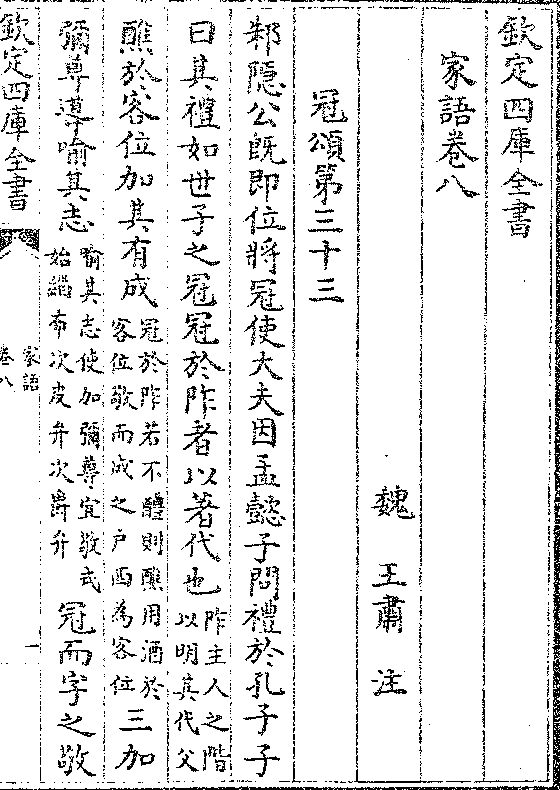 欽定四庫全書
家語卷八
魏王肅注
冠頌第三十三
邾隠公既即位將冠使大夫因孟懿子問禮於孔子子
曰其禮如世子之冠冠於阼者以著代也阼主人之階以明其代父
醮於客位加其有成冠於阼若不醴則醮用酒於客位敬而成之戸西為客位三加
彌尊導喻其志喻其志使加彌尊宜敬式始緇布次皮弁次爵弁冠而字之敬
欽定四庫全書
家語
卷八
一